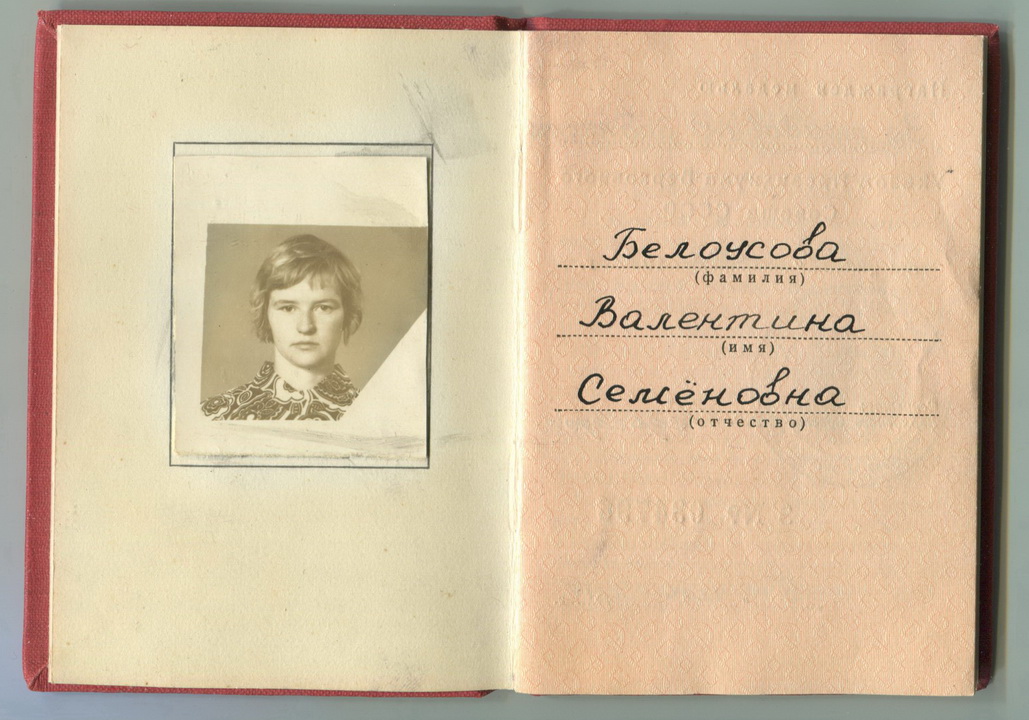 Белоусова
(фамилия)
Валентина
(имя)
Семёновна
(отчество)